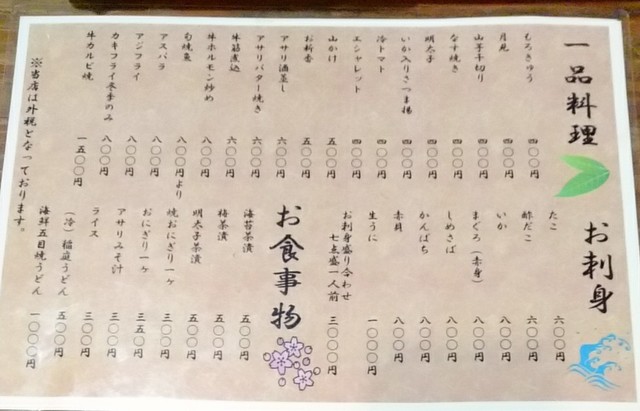 一品料理
もろきゅう 四〇〇円
月見 四〇〇円
山芋千切り 四〇〇円
なす焼き 四〇〇円
明太子 四〇〇円
いか入りさつま揚 四〇〇円
冷トマト 四〇〇円
エシャレット 四〇〇円
山かけ 五〇〇円
お新香 五〇〇円
アサリ酒蒸し 六〇〇円
アサリバター焼き 六〇〇円
牛筋煮込 六〇〇円
牛ホルモン炒め 八〇〇円
旬焼魚 八〇〇円より
アスパラ 八〇〇円
アジフライ 八〇〇円
カキフライ冬季のみ 八〇〇円
牛カルビ焼 一五〇〇円
お刺身
たこ 六〇〇円
酢だこ 六〇〇円
いか 八〇〇円
まぐろ（赤身） 八〇〇円
しめさば 八〇〇円
かんぱち 八〇〇円
赤貝 八〇〇円
生うに 一〇〇〇円
お刺身盛り合わせ
七点盛一人前 三〇〇〇円
お食事物
海苔茶漬 五〇〇円
梅茶漬 五〇〇円
明太子茶漬 五〇〇円
焼おにぎり一ヶ 三五〇円
おにぎり一ヶ 三五〇円
アサリみそ汁 三〇〇円
ライス 三〇〇円
（冷）稲庭うどん 五〇〇円
海鮮五目焼うどん 一〇〇〇円
※当店は外税となっております。